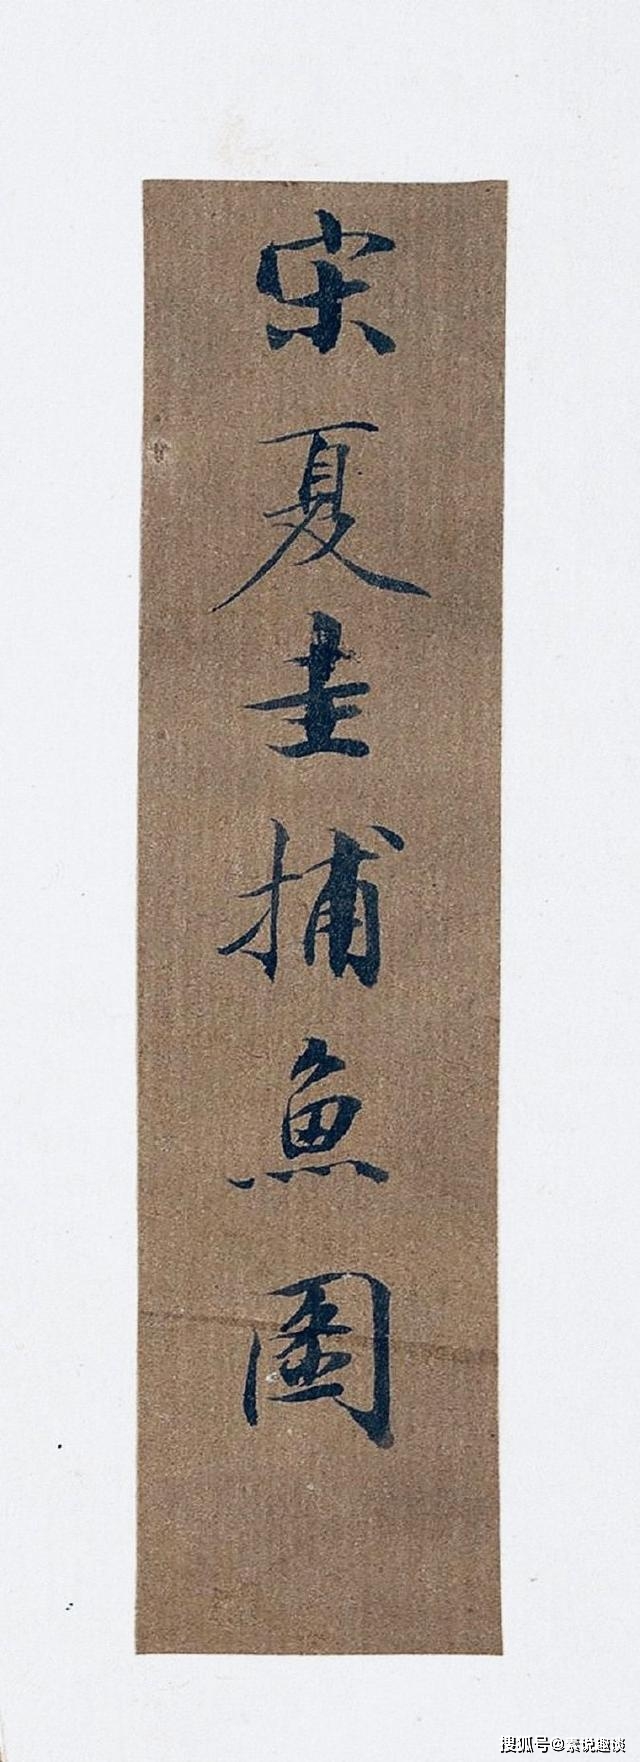 宋夏圭捕魚圖
搜狐号@素说趣谈